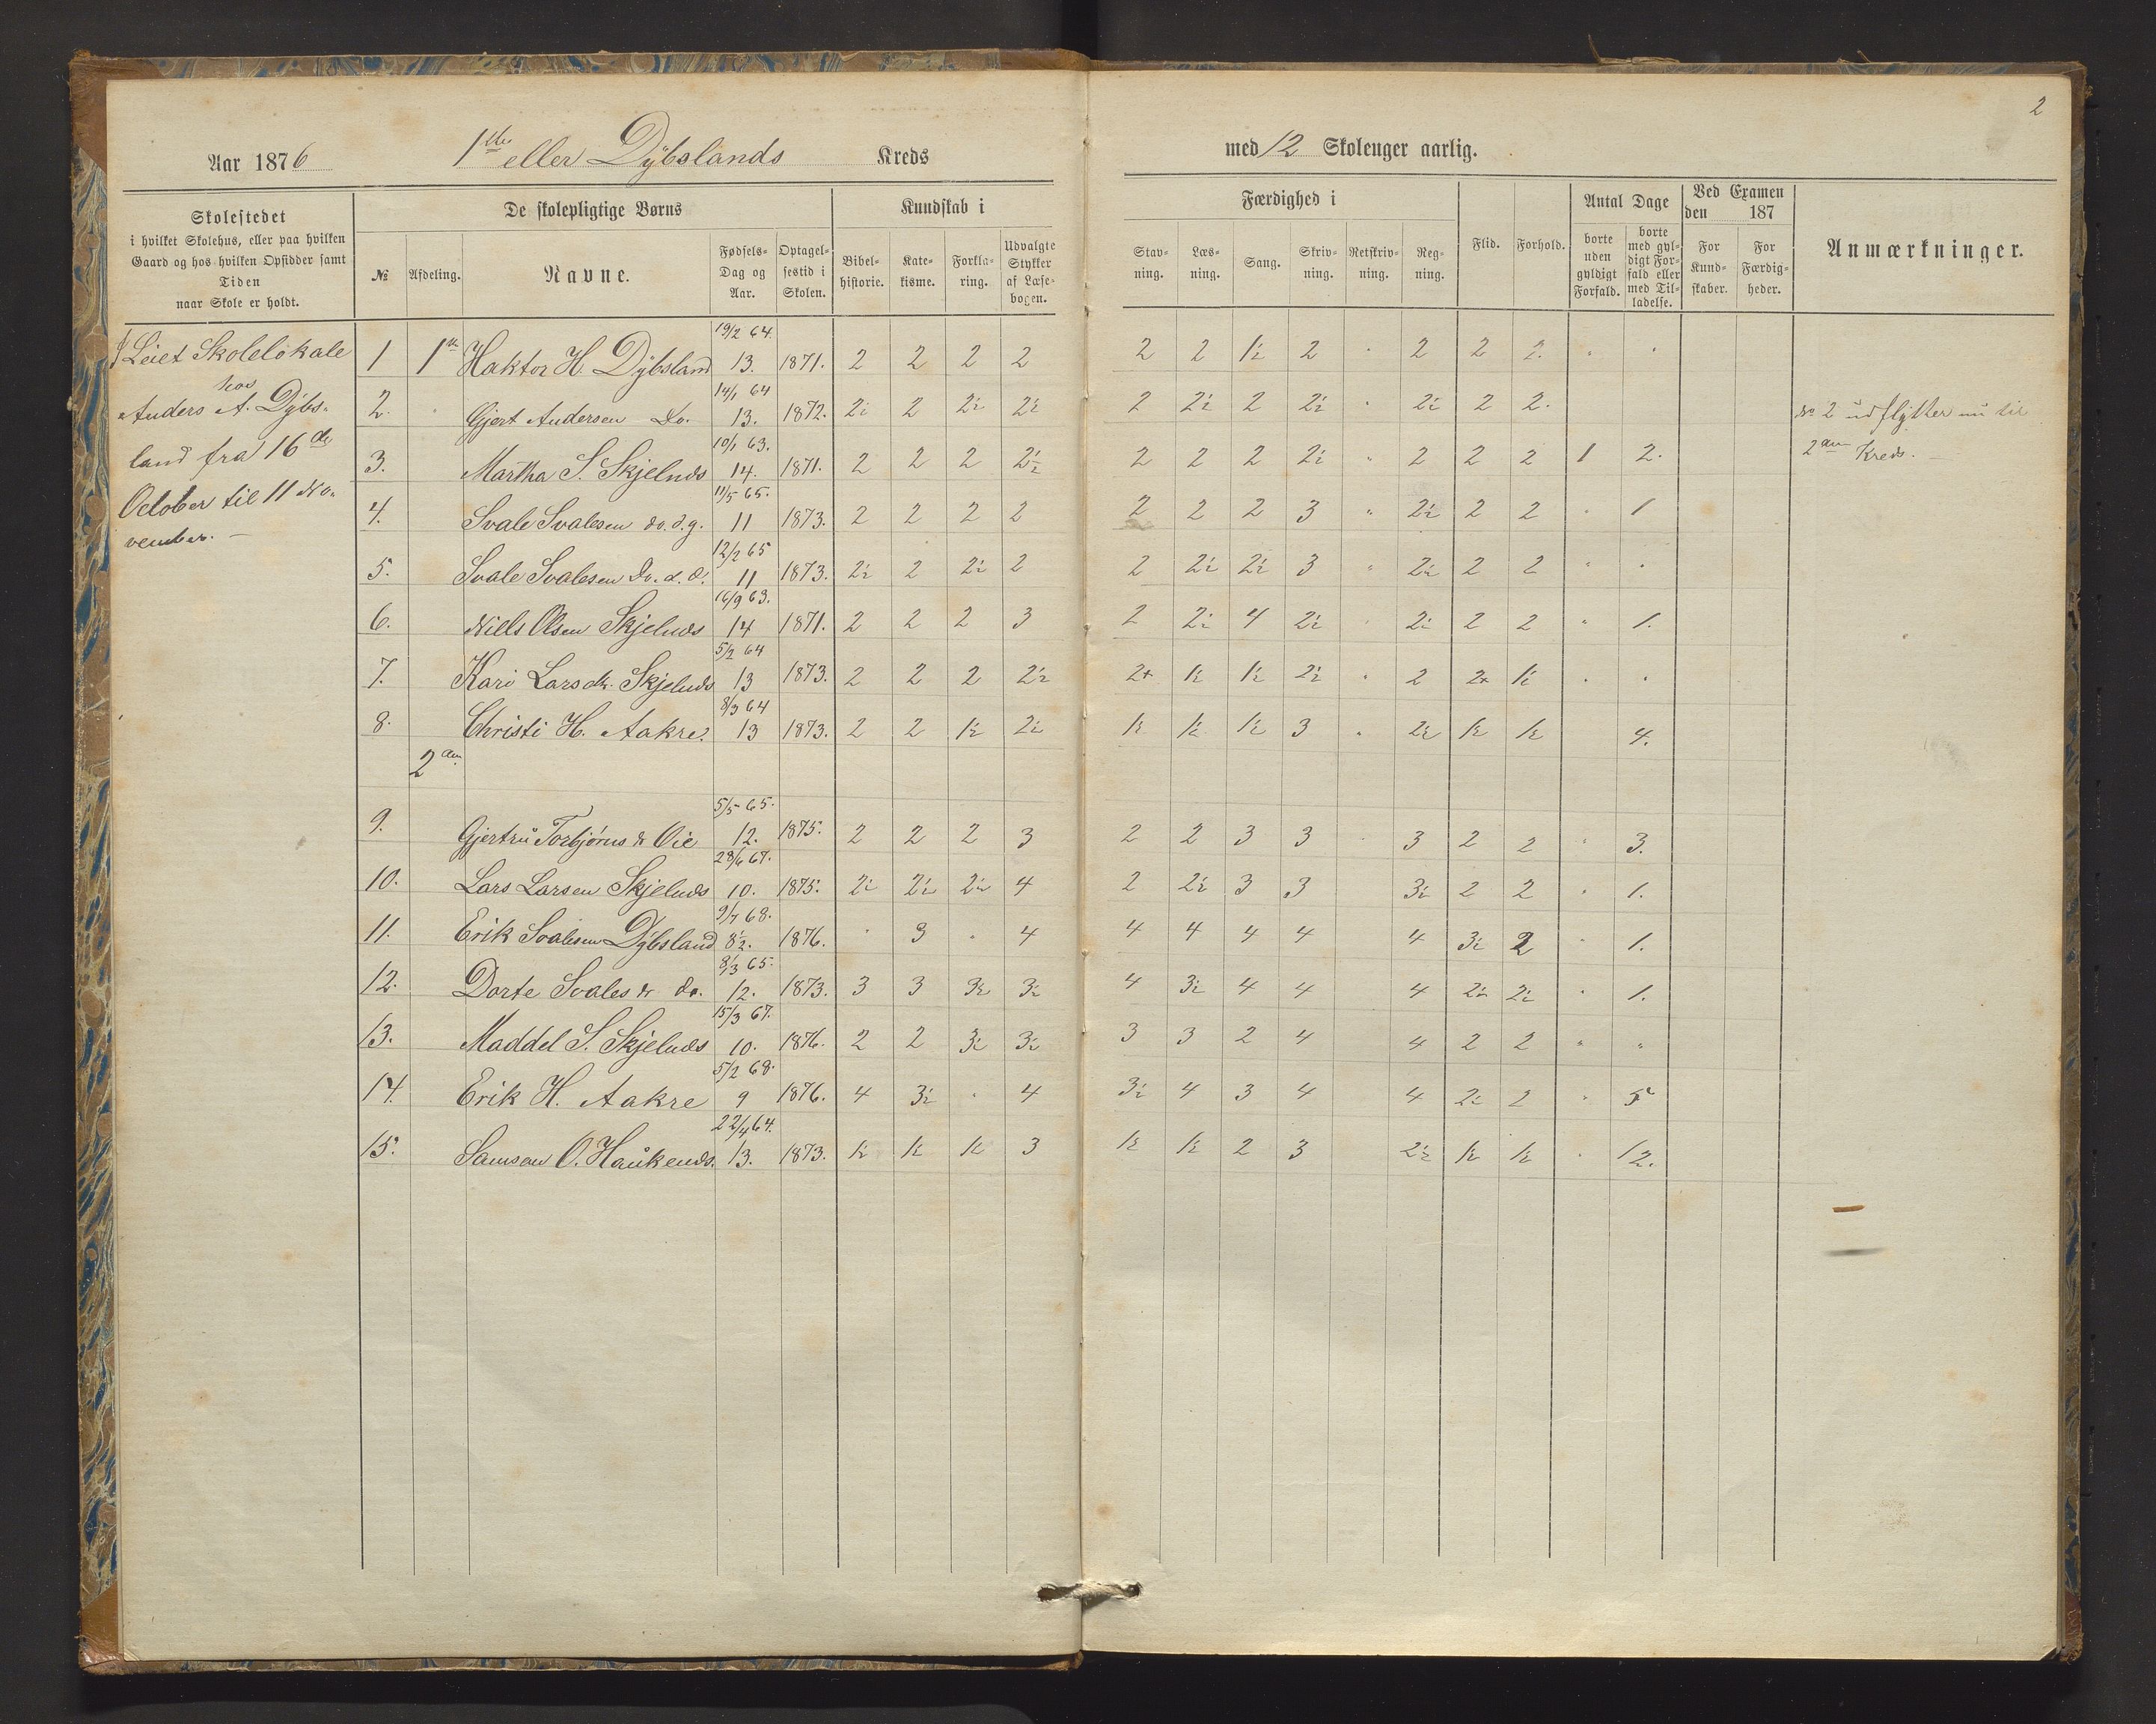 2
Aar 1876 1ste eller Dybslands Kreds med 12 Skoleuger aarlig.
Skolestedet
i hvilket Skolehus, eller paa hvilken
Gaard og hos hvilken Opsidder samt
Tiden
naar Skole er holdt.
De skolepligtige Børns
№ Afdeling. Navne. Fødsels-Dag og Aar. Optagelsestid i Skolen.
Kundskab i
Bibelhistorie. Katekisme. Forklaring. Udvalgte Stykker af Læsebogen.
Færdighed i
Stavning. Læsning. Sang. Skrivning. Retskrivning. Regning.
Flid. Forhold.
Antal Dage
borte uden gyldigt Forfald. borte med gyldigt Forfald eller med Tilladelse.
Ved Examen
den 187
For Kundskaber. For Færdigheder.
Anmærkninger.
Leiet Skolelokale
hos
Anders A. Dybs-
land fra 16de
October til 11 No-
vember. —
19/2 64.
1 1ste Haktor H. Dybsland 13. 1871. 2 2 2 2 2 2 1½ 2 " 2 2 2. " "
14/1 64
2. " Gjert Andersen Do. 13. 1872. 2½ 2 2½ 2½ 2 2½ 2 2½ " 2½ 2 2.
No 2 udflytter nu til
2den Kreds. —
10/1 63.
3. Martha S. Skjelnds 14. 1871. 2 2 2 2½ 2 2 2 2½ " 2 2 2 1 2.
11/5 65.
4. Svale Svalesen do. d.y. 11 1873. 2 2 2 2 2 2 2 3 " 2½ 2 2 " 1
12/2 65
5. Svale Svalesen Do. d. æ. 11 1873. 2½ 2 2½ 2 2 2½ 2½ 3 " 2½ 2 2 " "
16/9 63.
6. Niels Olsen Skjelnds 14 1871. 2 2 2 3 2 2½ 4 2½ " 2½ 2 2 " 1.
5/2 64
7. Kari Larsdtr. Skjelnds 13 1873. 2 2 2 2½ 2+ 1½ 1½ 2½ " 2 2+ 1½ " "
8/3 64
8. Christi H. Aakre. 13 1873. 2 2 1½ 2½ 1½ 1½ 1½ 3 " 2½ 1½ 1½ 4.
2den
5/5 65.
9. Gjertru Torbjørns dr Oie 12. 1875. 2 2 2 3 2 2 3 3 " 3 2 2 " 3.
28/6 67.
10. Lars Larsen Skjelnds 10. 1875. 2½ 2½ 2½ 4 2 2½ 3 3 3½ 2 2 " 1.
9/7 68.
11. Erik Svalesen Dybsland 8½. 1876. " 3 " 4 4 4 4 4 4 3½ 2 " 1.
8/3 65.
12. Dorte Svales dr do. 12. 1873. 3 3 3½ 3½ 4 3½ 4 4 4 2½ 2½ " 1.
15/3 67.
13. Maddel S. Skjelnds 10. 1876. 2 2 3½ 3½ 3 3 2 4 4 2 2 " "
5/2 68.
14. Erik H. Aakre 9 1876. 4 3½ " 4 3½ 4 3 4 4 2½ 2 " 5
22/4 64.
15. Samson O. Haukends. 13. 1873. 1½ 1½ 1½ 3 1½ 1½ 2 3 2½ 1½ 1½ " 12.